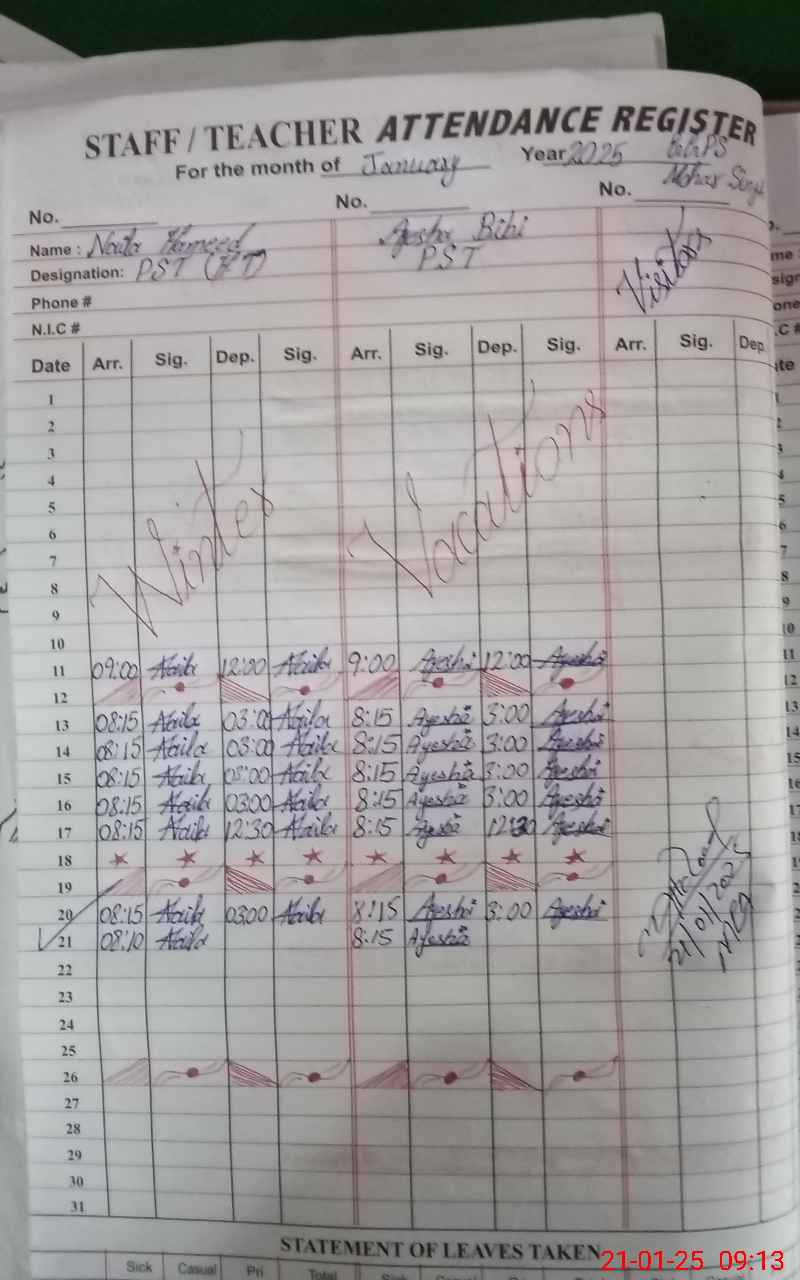 STAFF / TEACHER ATTENDANCE REGISTER
For the month of January Year 2025 GGPS
No. No. No. Mohar Singh
Name : Naila Hameed Ayesha Bibi Visitors
Designation: PST (HT) PST
Phone #
N.I.C #
Date Arr. Sig. Dep. Sig. Arr. Sig. Dep. Sig. Arr. Sig. Dep
1
2
3
4
5
6
7
8
9
Winter Vacations
10
11 09:00 Naila 12:00 Naila 9:00 Ayesha 12:00 Ayesha
12
13 08:15 Naila 03:00 Naila 8:15 Ayesha 3:00 Ayesha
14 08:15 Naila 03:00 Naila 8:15 Ayesha 3:00 Ayesha
15 08:15 Naila 03:00 Naila 8:15 Ayesha 3:00 Ayesha
16 08:15 Naila 0300 Naila 8:15 Ayesha 3:00 Ayesha
17 08:15 Naila 12:30 Naila 8:15 Ayesha 12:30 Ayesha
18
19
20 08:15 Naila 0300 Naila 8:15 Ayesha 3:00 Ayesha
21 08:10 Naila 8:15 Ayesha
21/01/2025
22
23
24
25
26
27
28
29
30
31
STATEMENT OF LEAVES TAKEN
Sick Casual Pri Total
21-01-25 09:13